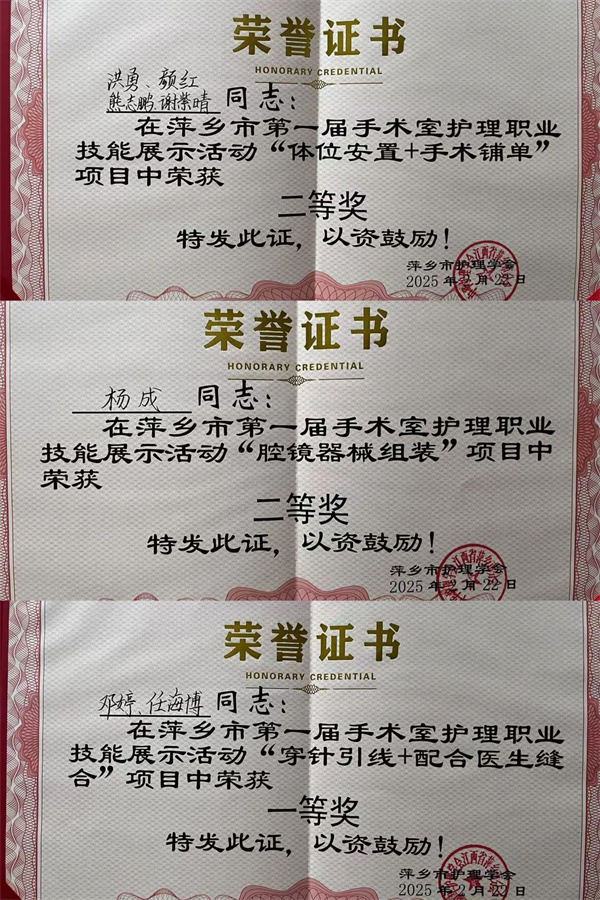 荣誉证书
HONORARY CREDENTIAL
洪勇、颜红
熊志鹏、谢紫晴 同志：
在萍乡市第一届手术室护理职业
技能展示活动“体位安置+手术铺单”
项目中荣获
二等奖
特发此证，以资鼓励！
萍乡市护理学会
2025年2月22日
荣誉证书
HONORARY CREDENTIAL
杨成 同志：
在萍乡市第一届手术室护理职业
技能展示活动“腔镜器械组装”项目中
荣获
二等奖
特发此证，以资鼓励！
萍乡市护理学会
2025年2月22日
荣誉证书
HONORARY CREDENTIAL
邓婷、任海博 同志：
在萍乡市第一届手术室护理职业
技能展示活动“穿针引线+配合医生缝
合”项目中荣获
一等奖
特发此证，以资鼓励！
萍乡市护理学会
2025年2月22日